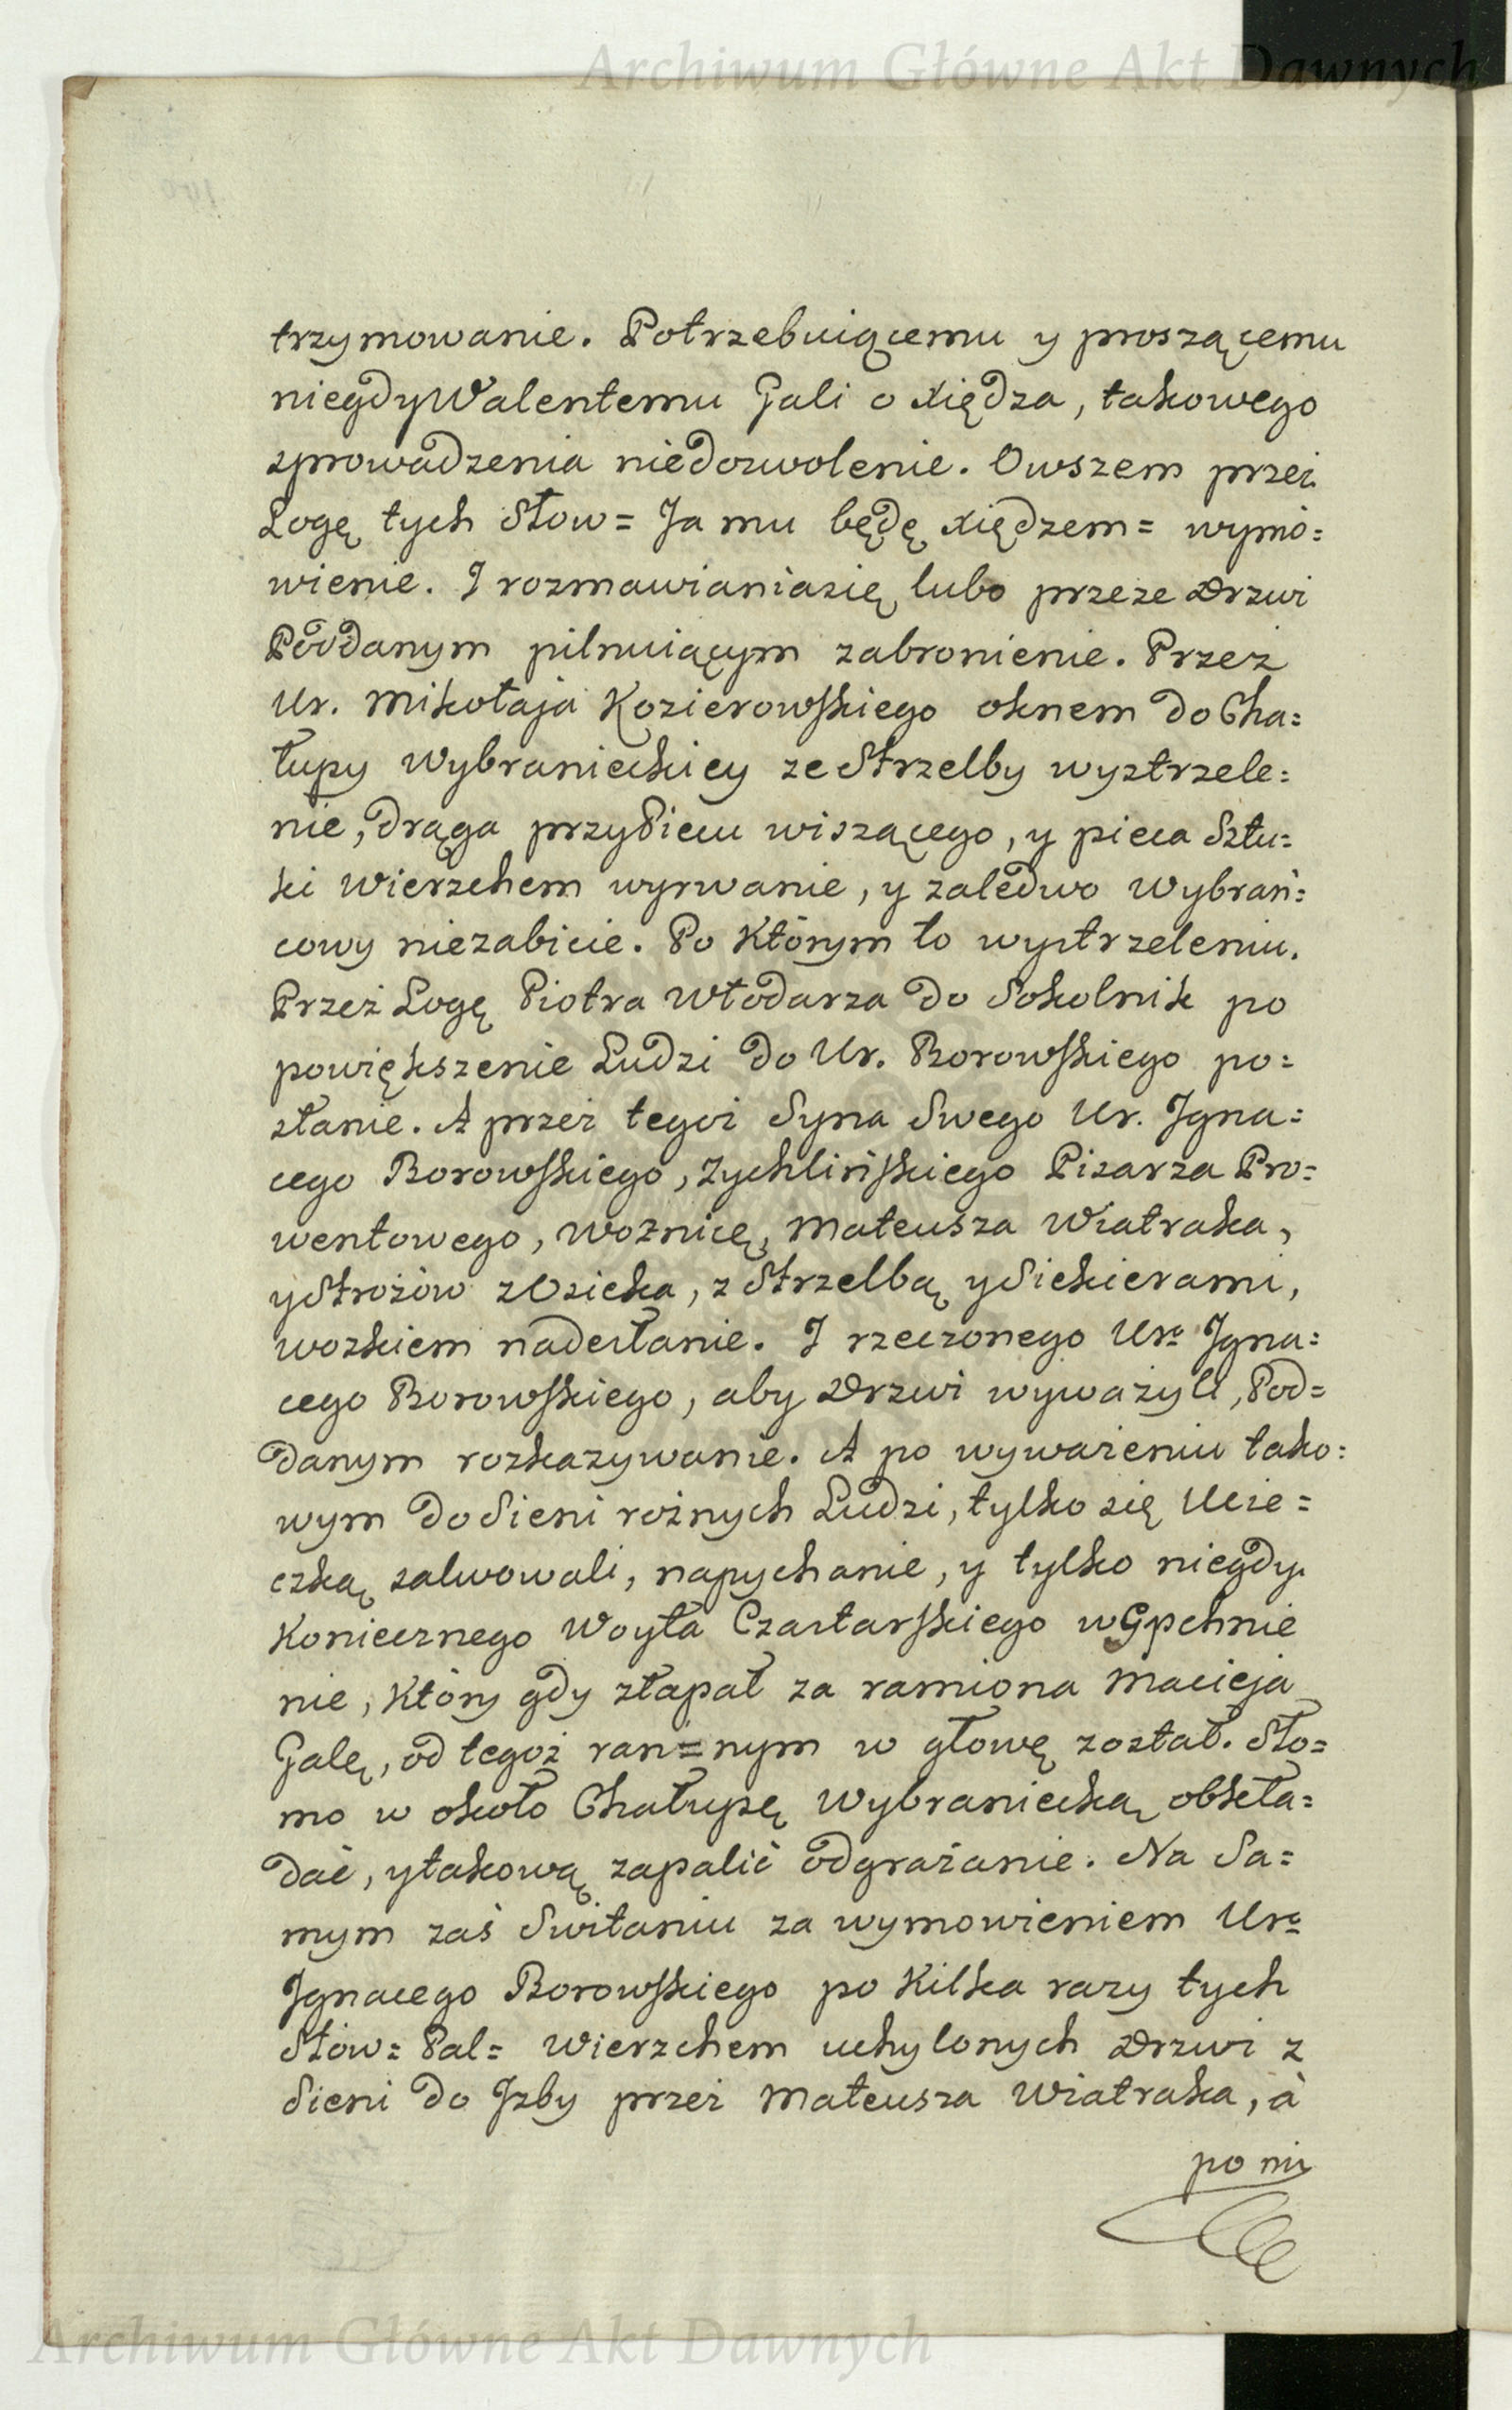 Archiwum Główne Akt Dawnych
trzymowanie. Potrzebuiącemu y proszącemu
niegdy Walentemu Gali o Xiędza, takowego
zprowadzenia niedozwolenie. Owszem przez
Logę tych Słow= Ja mu będę Xiędzem= wymó=
wienie. I rozmawiania się lubo przeze Drzwi
Poddanym pilnuiącym zabronienie. Przez
Ur. Mikołaja Kozierowskiego oknem do Cha=
łupy Wybranieckiey ze Strzelby wystrzele=
nie, drąga przy Piecu wiszącego, y pieca Sztu=
ki Wierzchem wyrwanie, y zaledwo Wybrań=
cowy niezabicie. Po Którym to wystrzeleniu.
Przez Logę Piotra Włodarza do Sokolnik po
powiększenie Ludzi do Ur. Borowskiego po=
słanie. A przez tegoż Syna Swego Ur. Igna=
cego Borowskiego, Zychlińskiego Pisarza Pro=
wentowego, Woźnicę, Mateusza Wiatraka,
y Strożów z Osieka, z Strzelbą y Siekierami,
wozkiem nadesłanie. I rzeczonego Urº Igna=
cego Borowskiego, aby Drzwi wyważyli, Pod=
danym rozkazywanie. A po wyważeniu tako=
wym do Sieni rożnych Ludzi, tylko się Ucie=
czką salwowali, napychanie, y tylko niegdy
Koniecznego Woyta Czastarskiego wepchnie
nie, Który gdy złapał za ramiona Macieja
Galę, od tegoż ran=nym w głowę został. Sło=
mo w około Chałupę Wybraniecką obkła=
dać, y takową zapalić odgrażanie. Na Sa=
mym zaś Switaniu za wymowieniem Urº
Ignacego Borowskiego po Kilka razy tych
Słów= Pal= Wierzchem uchylonych Drzwi z
Sieni do Izby przez Mateusza Wiatraka, à
po nim
Archiwum Główne Akt Dawnych